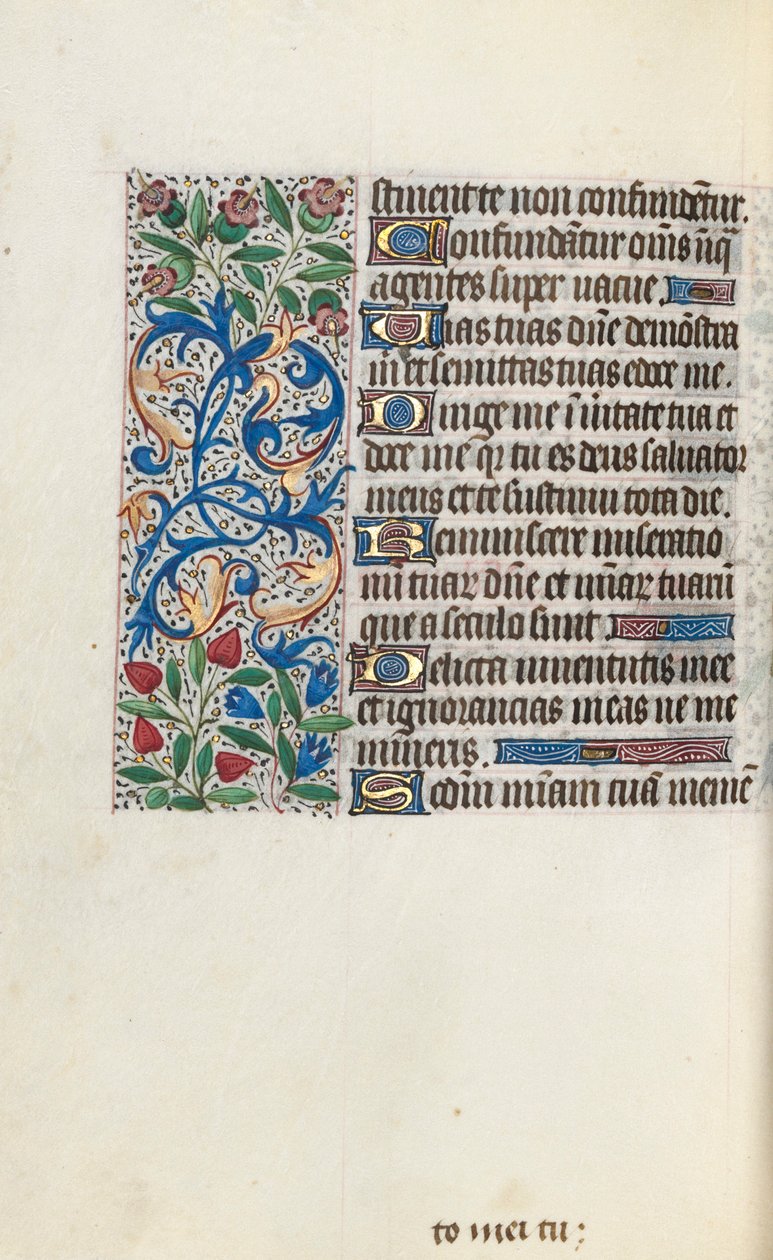 stinent te non confundēntur.
Confundātur om̄s iniq̄
agentes super vacue.
Uias tuas dn̄e demōstra
m̄ et semittas tuas edoce me.
Dirige me ī ūitate tua et
doce me qr̄ tu es deus saluator
meus et te sustinui tota die.
Reminiscere miseratio
nū tuaꝝ dn̄e et mīaꝝ tuarū
que a seculo sunt
Delicta iuuentutis mee
et ignorancias meas ne me
mineris.
Scdm̄ mīam tuā memē
to mei tu: